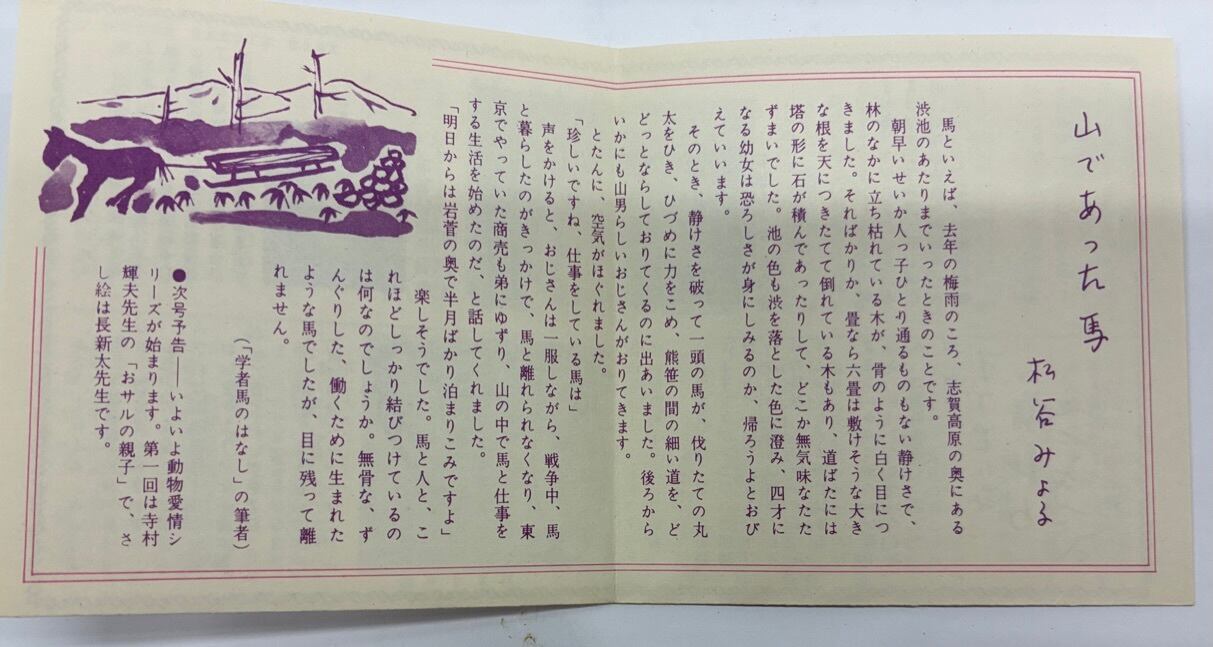 山であった馬
松谷みよ子
馬といえば、去年の梅雨のころ、志賀高原の奥にある
渋池のあたりまでいったときのことです。
朝早いせいか人っ子ひとり通るものもない静けさで、
林のなかに立ち枯れている木が、骨のように白く目につ
きました。そればかりか、畳なら六畳は敷けそうな大き
な根を天につきたてて倒れている木もあり、道ばたには
塔の形に石が積んであったりして、どこか無気味なたた
ずまいでした。池の色も渋を落とした色に澄み、四才に
なる幼女は恐ろしさが身にしみるのか、帰ろうよとおび
えていいます。
そのとき、静けさを破って一頭の馬が、伐りたての丸
太をひき、ひづめに力をこめ、熊笹の間の細い道を、ど
どっとならしておりてくるのに出あいました。後ろから
いかにも山男らしいおじさんがおりてきます。
とたんに、空気がほぐれました。
「珍しいですね、仕事をしている馬は」
声をかけると、おじさんは一服しながら、戦争中、馬
と暮らしたのがきっかけで、馬と離れられなくなり、東
京でやっていた商売も弟にゆずり、山の中で馬と仕事を
する生活を始めたのだ、と話してくれました。
「明日からは岩菅の奥で半月ばかり泊まりこみですよ」
楽しそうでした。馬と人と、こ
れほどしっかり結びつけているの
は何なのでしょうか。無骨な、ず
んぐりした、働くために生まれた
ような馬でしたが、目に残って離
れません。
(「学者馬のはなし」の筆者)
●次号予告――いよいよ動物愛情シ
リーズが始まります。第一回は寺村
輝夫先生の「おサルの親子」で、さ
し絵は長新太先生です。